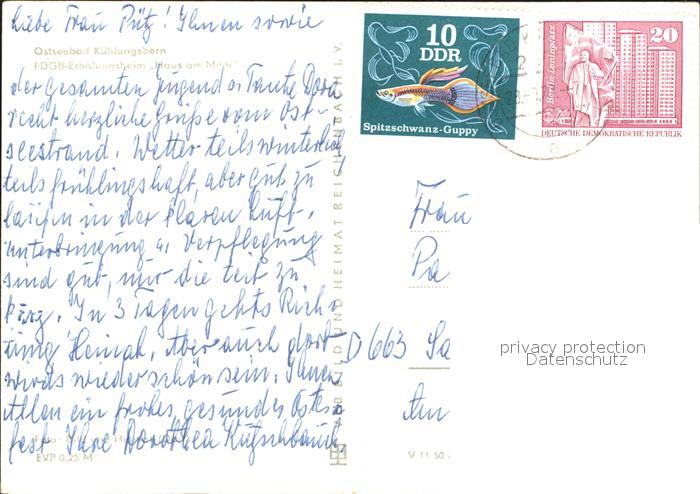 Liebe Frau Pütz! Ihnen sowie
Ostseebad Kühlungsborn
FDGB-Erholungsheim „Haus am Meer"
der gesamten Jugend u. Tante Dora
recht herzliche Grüße vom Ost-
seestrand. Wetter teils winterlich
teils frühlingshaft, aber gut zu
laufen in der klaren Luft.
Unterbringung u. Verpflegung
sind gut, nur die Zeit zu
kurz. In 3 Tagen gehts Rich-
tung Heimat. Aber auch dort
wirds wieder schön sein. Ihnen
Allen ein frohes, gesundes Oster-
fest Ihre Dorothea
EVP 0,25 M
BILD UND HEIMAT REICHENBACH I. V.
10
DDR
Spitzschwanz-Guppy
Berlin-Leninplatz
20
DEUTSCHE DEMOKRATISCHE REPUBLIK
Frau
Pa
D 663 Sa
Am
privacy protection
Datenschutz
V 11 50